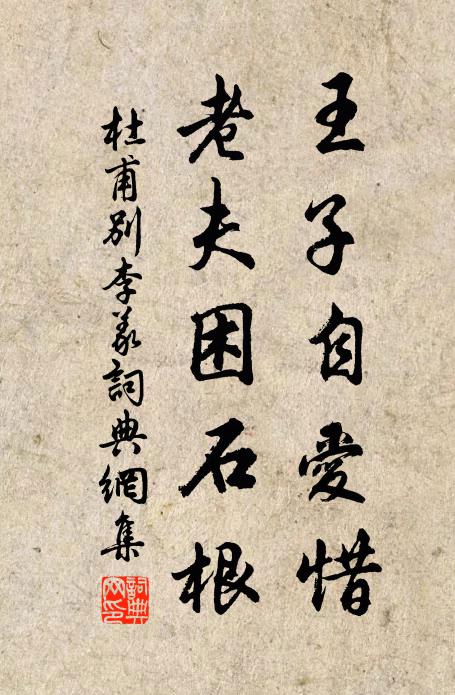 王子自愛惜
老夫困石根
杜甫別李義詞典網集
詞典網印